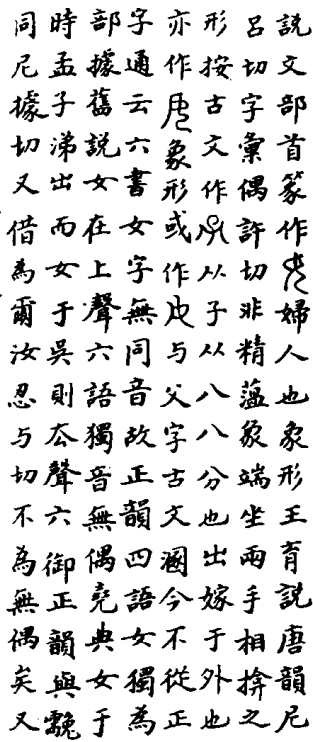 説文部首篆作婦人也象形王育説唐韻尼
呂切字彙偶許切非精蘊象端坐兩手相揜之
形按古文作从子从八八分也出嫁于外也
亦作象形或作与父字古文溷今不從正
字通云六書女字無同音故正韻四語女獨為
部據舊説女在上聲六語獨音無偶堯典女于
時孟子涕出而女于吳則厺聲六御正韻與
同尼據切又借為爾汝忍与切不為無偶矣又